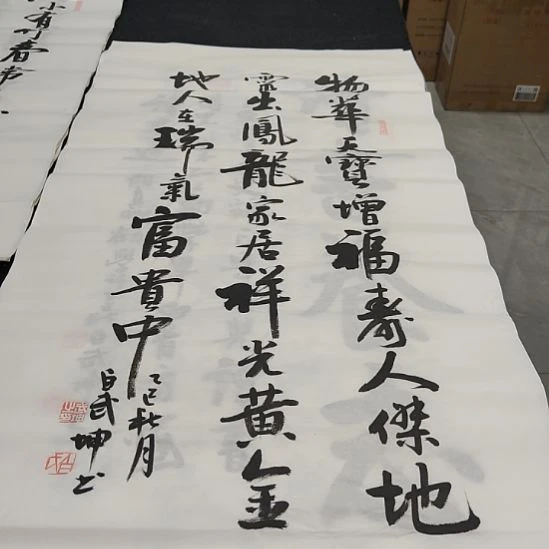 物華天寶增福壽人傑地
靈出鳳龍家居祥光黃金
地人在瑞氣富貴中
乙巳秋月
武坤书